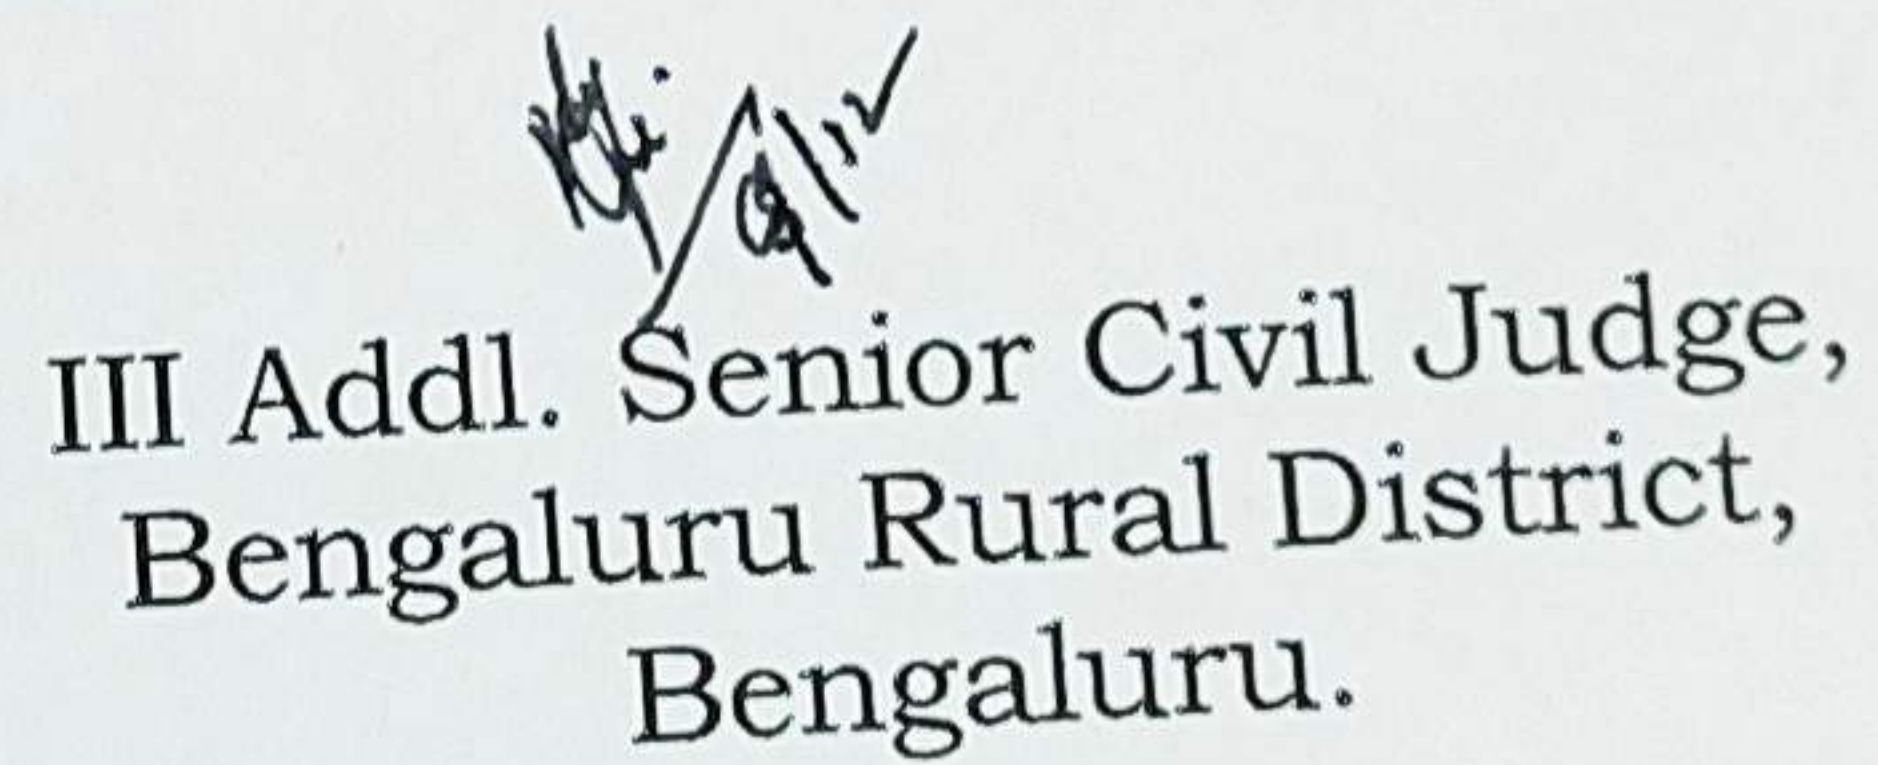 III Addl. Senior Civil Judge,
Bengaluru Rural District,
Bengaluru.